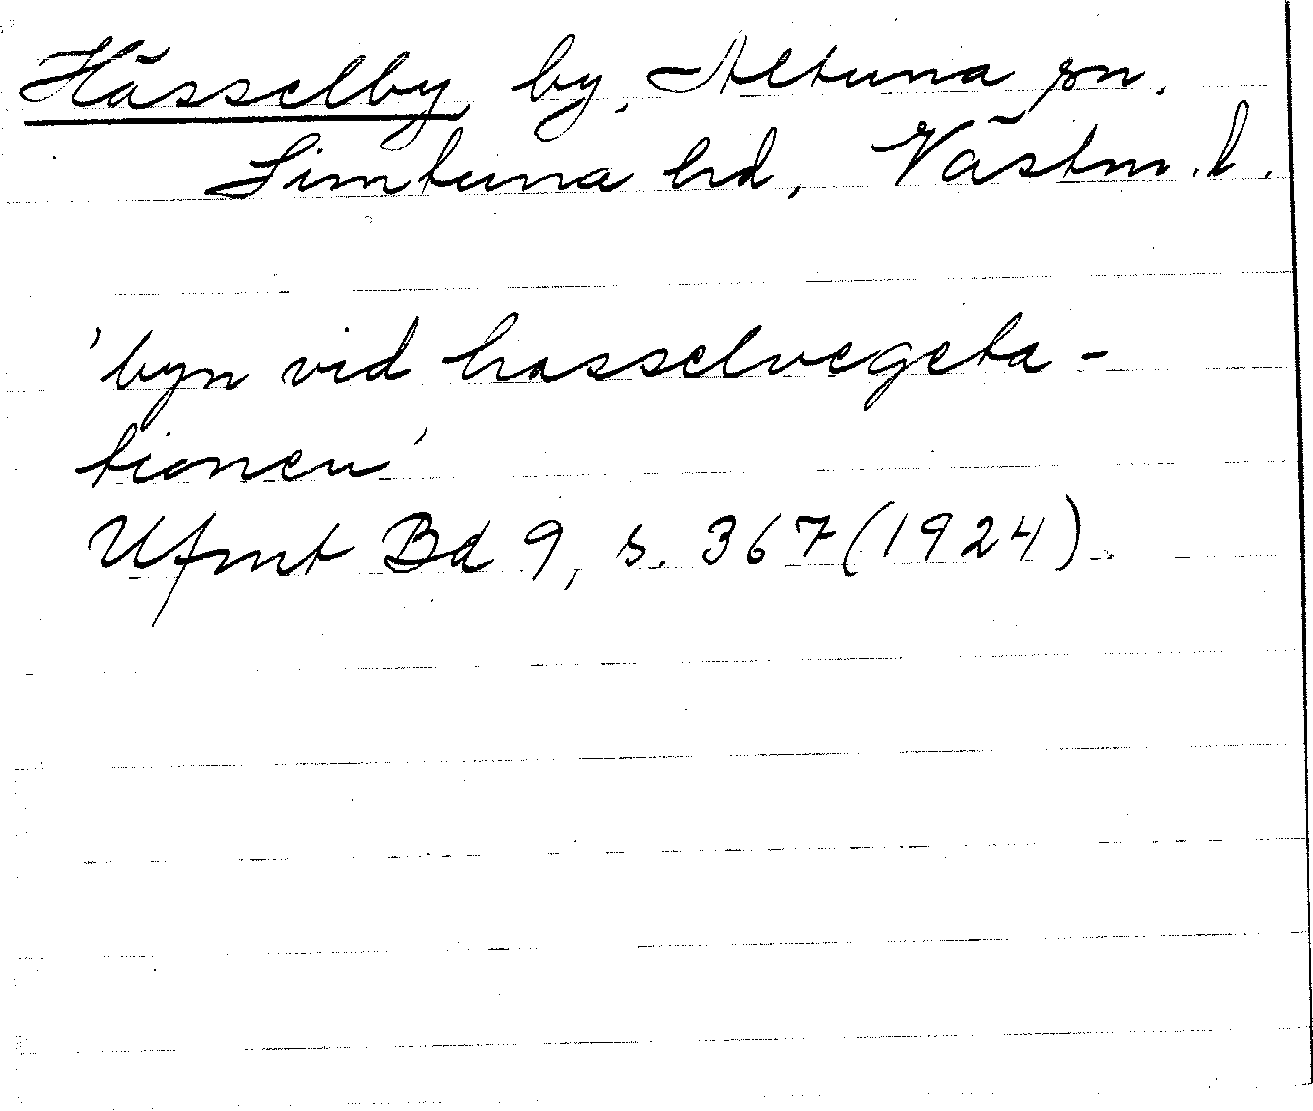 Hässelby by, Altuna sn.
Simtuna hd, Västm. l.
'byn vid hasselvegeta-
tionen'
Ufmt Bd 9, s. 367 (1924).